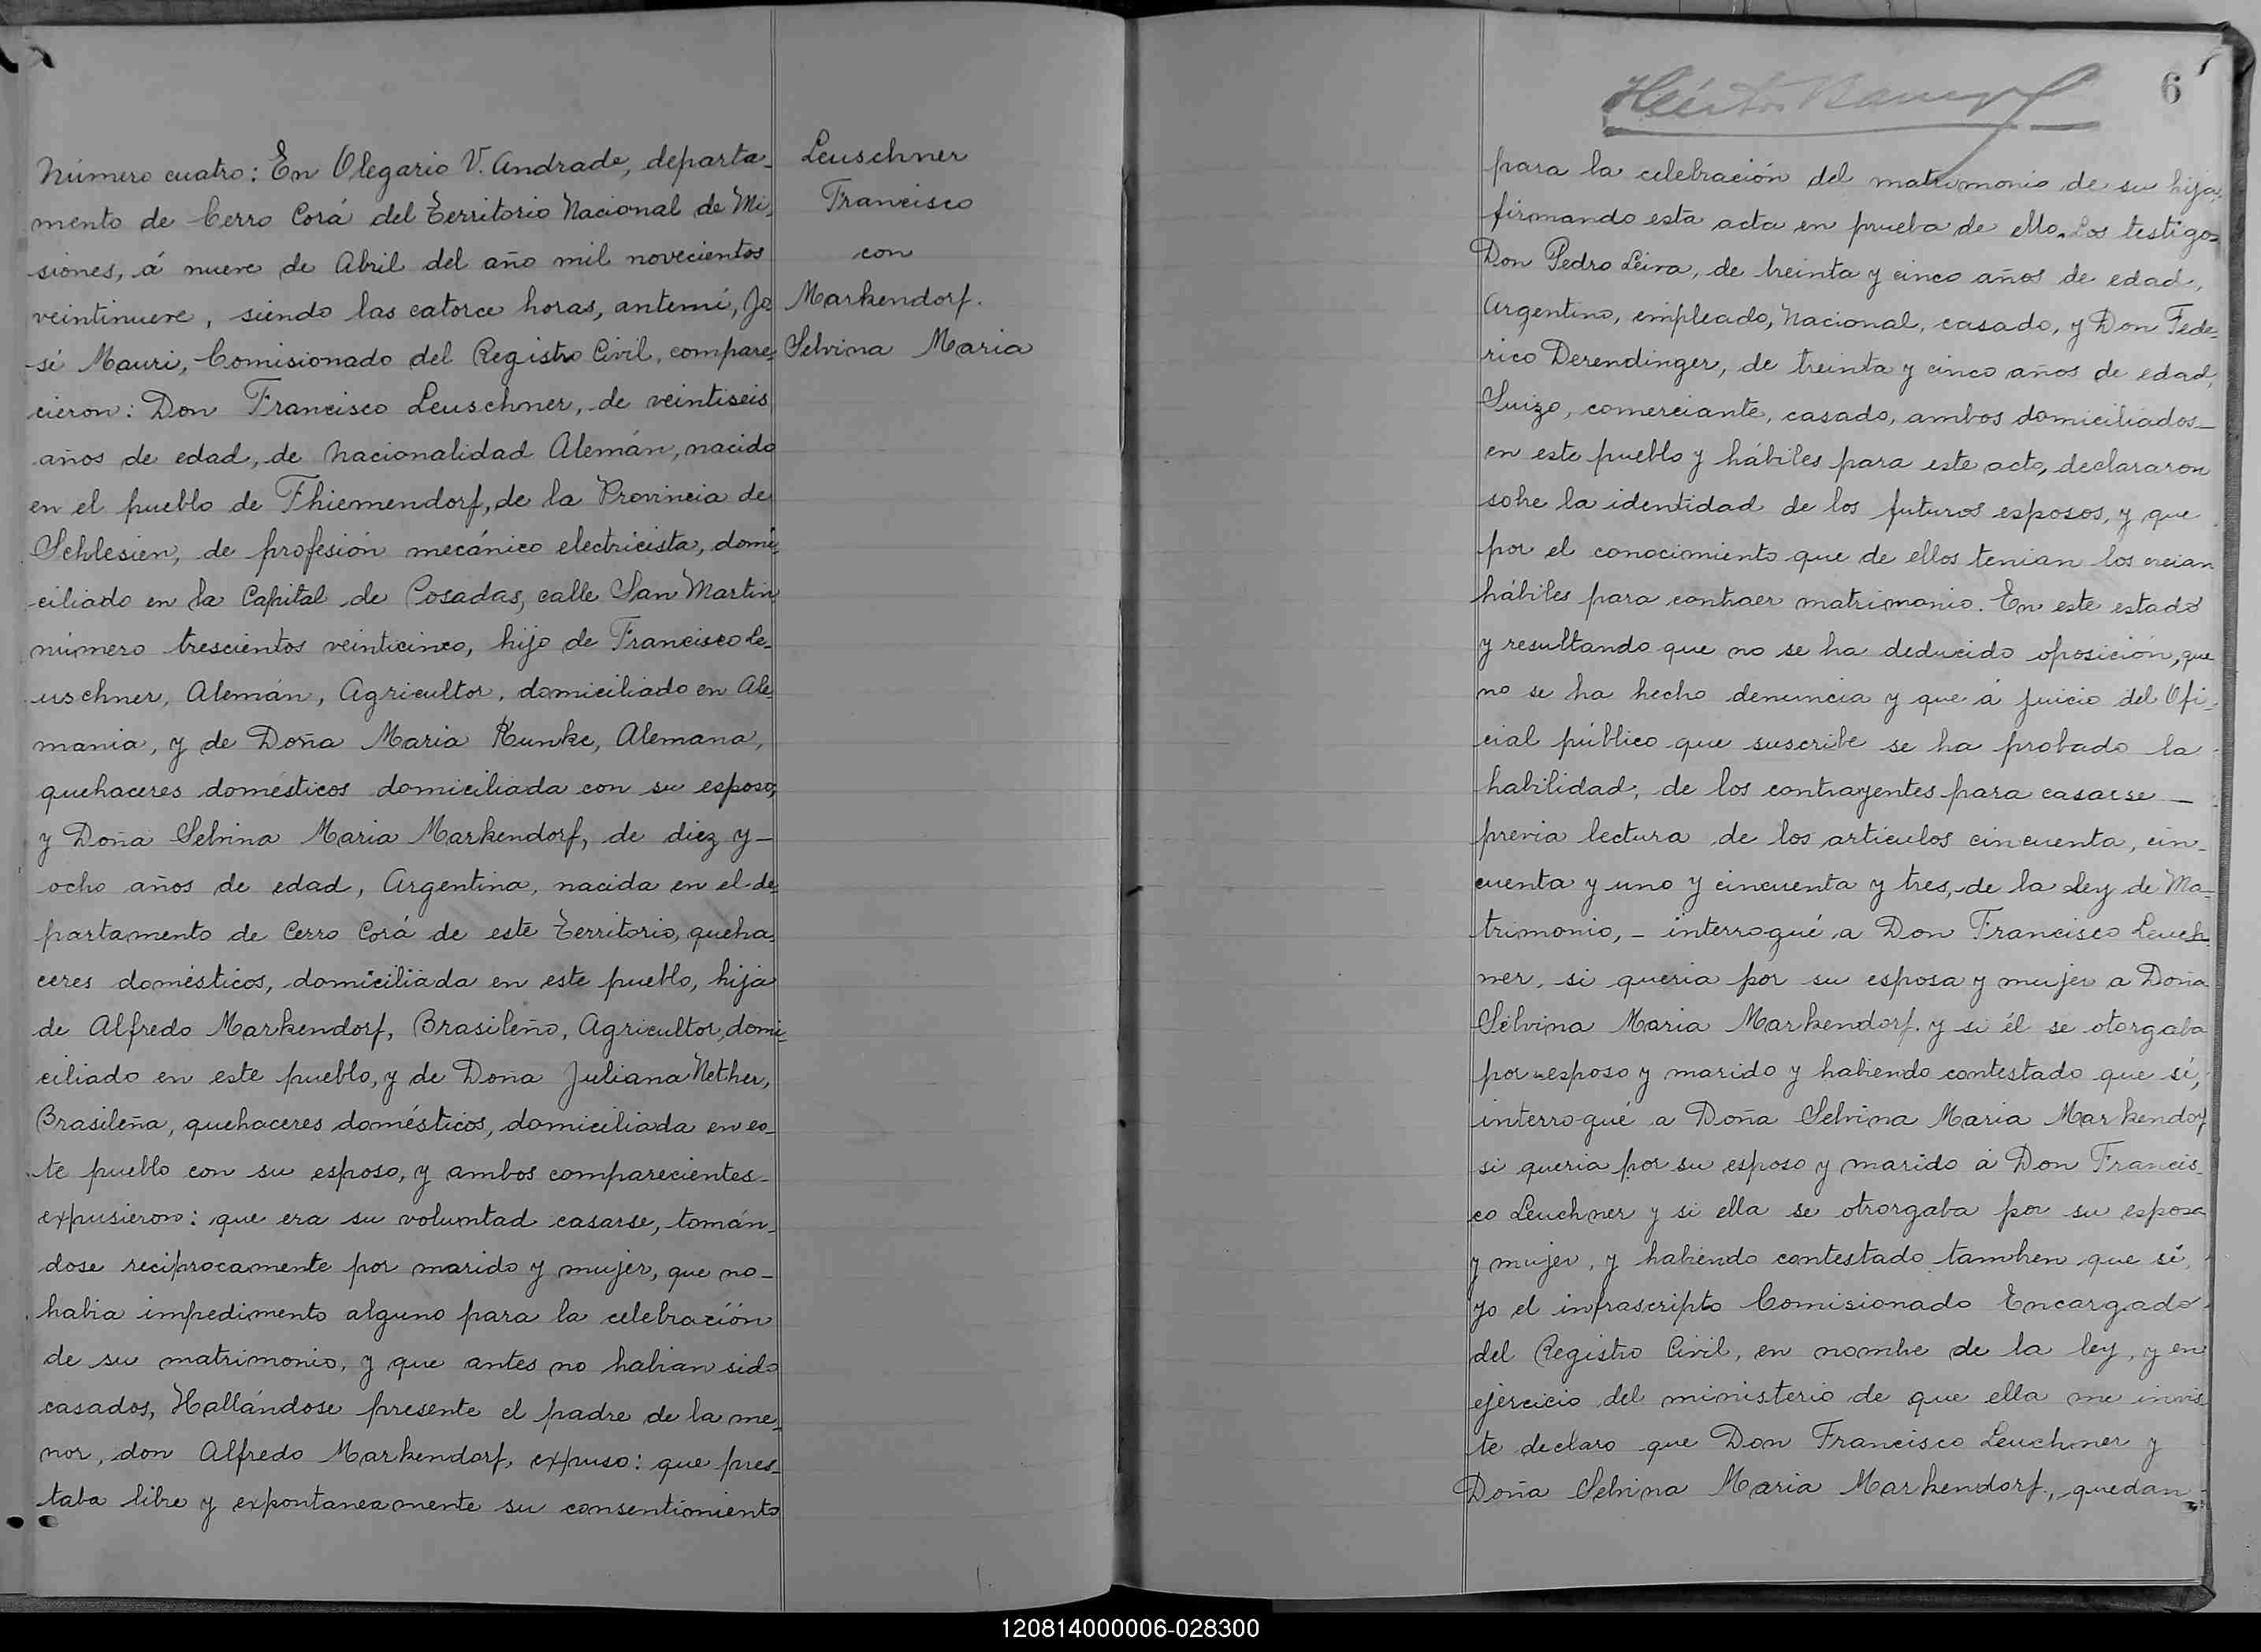 Número cuatro: En Olegario V. Andrade, departa-
mento de Cerro Corá del Territorio Nacional de Mi-
siones, á nueve de Abril del año mil novecientos
veintinueve, siendo las catorce horas, antemí, Jo-
sé Mauri, Comisionado del Registro Civil, compare-
cieron: Don Francisco Leuschner, de veintiseis
años de edad, de Nacionalidad Alemán, nacido
en el pueblo de Thiemendorf, de la Provincia de
Schlesien, de profesión mecánico electricista, domi-
ciliado en la Capital de Posadas, calle San Martin
número trescientos veinticinco, hijo de Francisco Le-
uschner, Alemán, Agricultor, domiciliado en Ale
mania, y de Doña Maria Kunke, Alemana,
quehaceres domésticos domiciliada con su esposo,
y Doña Selvina Maria Markendorf, de diez y-
ocho años de edad, Argentina, nacida en el de-
partamento de Cerro Corá de este Territorio, queha-
ceres domésticos, domiciliada en este pueblo, hija
de Alfredo Markendorf, Brasileño, Agricultor, domi-
ciliado en este pueblo, y de Dona Juliana Nether,
Brasileña, quehaceres domésticos, domiciliada en es-
te pueblo con su esposo, y ambos comparecientes-
expusieron: que era su voluntad casarse, tomán-
dose reciprocamente por marido y mujer, que no-
habia impedimento alguno para la celebración
de su matrimonio, y que antes no habian sido
casados, Hallándose presente el padre de la me-
nor, don Alfredo Markendorf, expuso: que pres-
taba libre y expontaneamente su consentimiento
Leuschner
Francisco
con
Markendorf.
Selvina Maria
6
Héctor
para la celebración del matrimonio de su hija,
firmando esta acta en prueba de ello. Los testigos
Don Pedro Leiva, de treinta y cinco años de edad,
Argentino, empleado, Nacional, casado, y Don Fede-
rico Derendinger, de treinta y cinco años de edad,
Suizo, comerciante, casado, ambos domiciliados-
en este pueblo y hábiles para este acto, declararon
sobre la identidad de los futuros esposos, y que
por el conocimiento que de ellos tenian los creian
hábiles para contraer matrimonio. En este estado
y resultando que no se ha deducido oposición, que
no se ha hecho denuncia y que á juicio del Ofi-
cial público que suscribe se ha probado la
habilidad, de los contrayentes para casarse -
previa lectura de los articulos cincuenta, cin-
cuenta y uno y cincuenta y tres, de la Ley de Ma-
trimonio, - interrogué a Don Francisco Leuch
ner, si queria por su esposa y mujer a Doña
Selvina Maria Markendorf. y si él se otorgaba
por esposo y marido y habiendo contestado que sí,
interrogué a Doña Selvina Maria Markendorf
si queria por su esposo y marido á Don Francis-
co Leuchner y si ella se otrorgaba por su esposa
y mujer, y habiendo contestado tambien que sí,
yo el infrascripto Comisionado Encargado
del Registro Civil, en nombre de la ley, y en
ejercicio del ministerio de que ella me invis
te declaro que Don Francisco Leuchner y
Doña Selvina Maria Markendorf, quedan
120814000006-028300